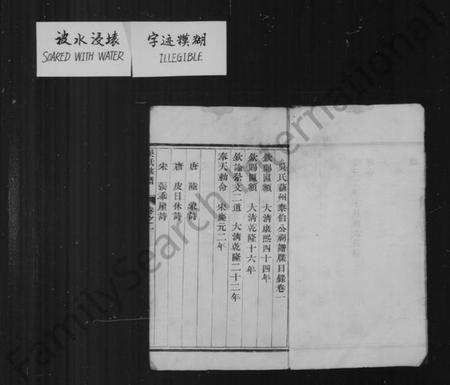 被水浸壞
SOARED WITH WATER
字迹模糊
ILLEGIBLE
吳氏蘇州泰伯公祠譜牒目錄卷一
欽賜匾額 大清康熙四十四年
欽賜匾額 大清乾隆十六年
欽諭祭文二道 大清乾隆二十二年
奉天勅命 宋慶元二年
唐 陸 蒙詩
唐 皮日休詩
宋 張乖崖詩
FamilySearch International